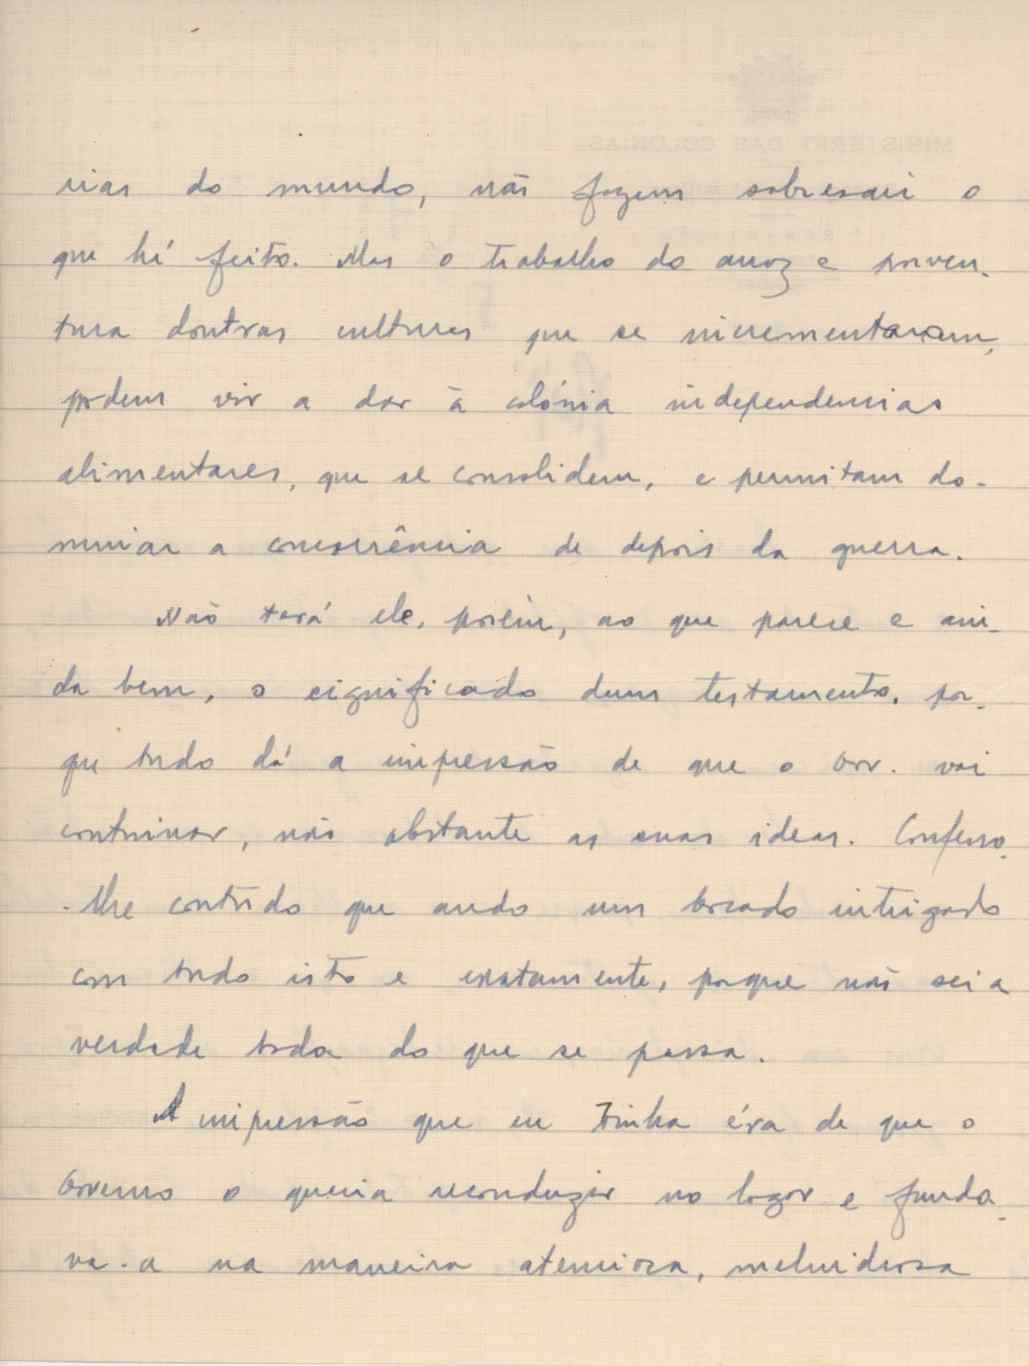 rias do mundo, não fazem sobresair o
que há feito. Mas o trabalho do arroz e porven-
tura doutras culturas que se incrementaram,
podem vir a dar à colónia independencias
alimentares, que se consolidem, e permitam do-
minar a concorrência de depois da guerra.
Não terá ele, porêm, ao que parece e ain-
da bem, o significado dum testamento, por-
que tudo dá a impressão de que o Gov. vai
continuar, não obstante as suas ideas. Confesso-
-lhe contudo que ando um bocado intrigado
com tudo isto e exatamente, porque não sei a
verdade toda do que se passa.
A impressão que eu tinha éra de que o
Governo o queria reconduzir no logar e funda-
va-a na maneira atenciosa, melindrosa
MINISTÉRIO DAS COLONIAS